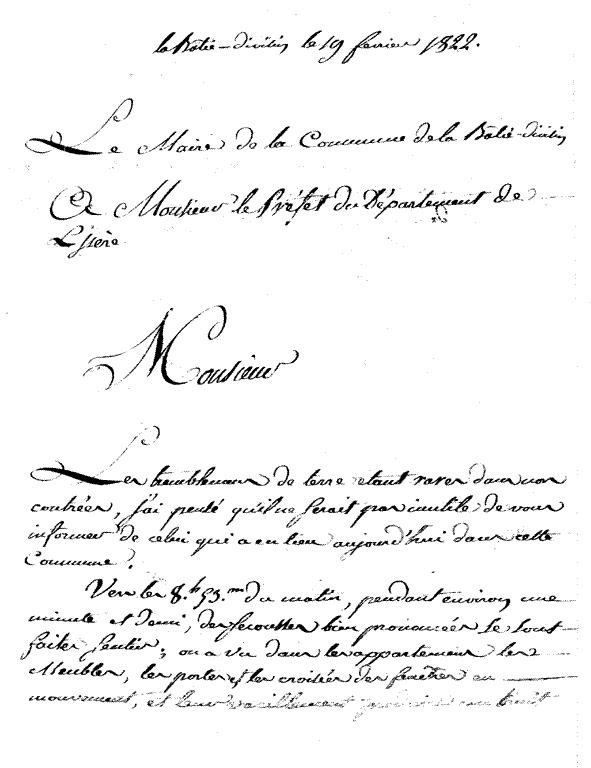 la Batie-divisin le 19 fevrier 1822.
Le Maire de la Commune de la Batié-divisin
A Monsieur le Préfet du Département de
L'jsère
Monsieur
Les tremblemans de terre etant rares dans nos
contrées, j'ai pensé qu'il ne serait pas inutile de vous
informer de celui qui a eu lieu aujourd'hui dans cette
Commune.
Vers les 8.h 53.m du matin, pendant environ une
minute et demi, des secousses bien prononcées se sont
faites sentir; on a vu dans les appartement les
Meubles, les portes et les croisées des fenêtres en
mouvement, et leur vacillement produire un bruit